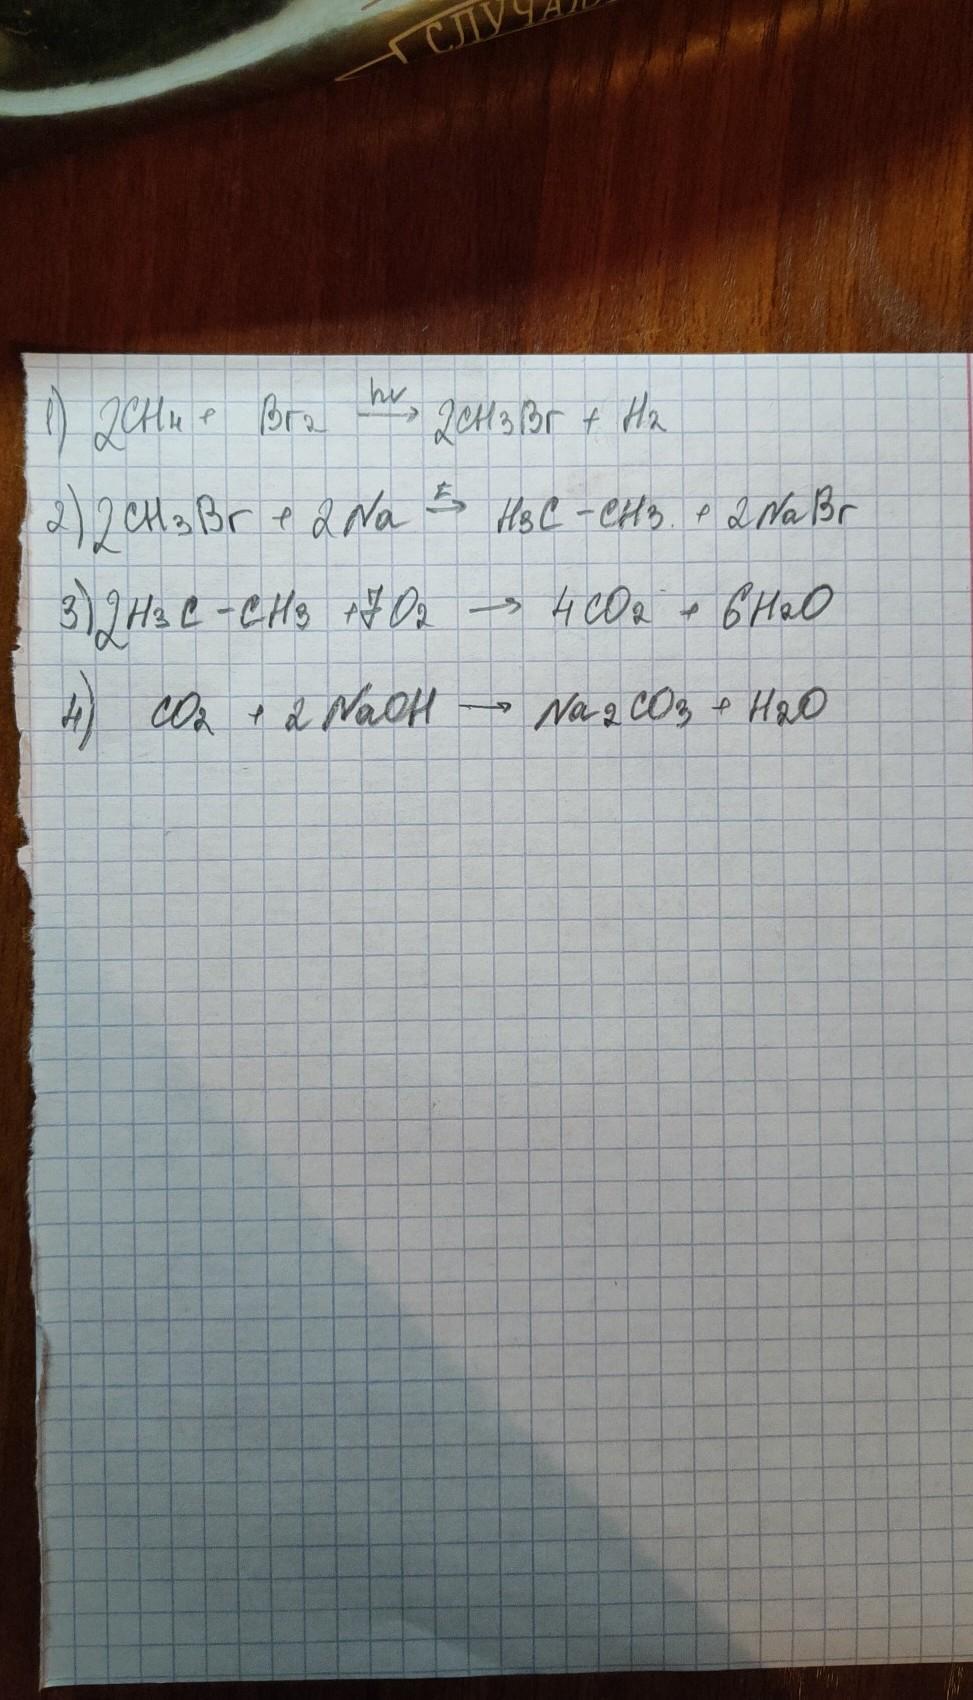 СЛУЧА
1) 2CH4 + Br2 hν→ 2CH3Br + H2
2) 2CH3Br + 2Na t→ H3C-CH3 + 2NaBr
3) 2H3C-CH3 + 7O2 → 4CO2 + 6H2O
4) CO2 + 2NaOH → Na2CO3 + H2O